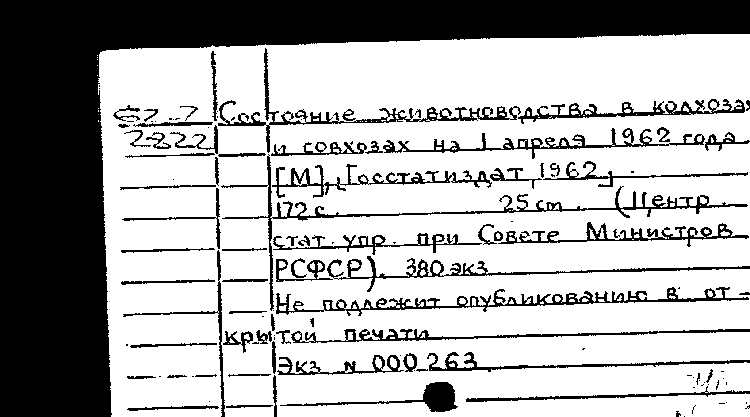 62-7 Состояние животноводства в колхозах
2822 и совхозах на 1 апреля 1962 года
[М], [Госстатиздат, 1962]
172 с. 25 cm. (Центр.
стат. упр. при Совете Министров
РСФСР). 380 экз
Не подлежит опубликованию в от-
крытой печати
Экз № 000263